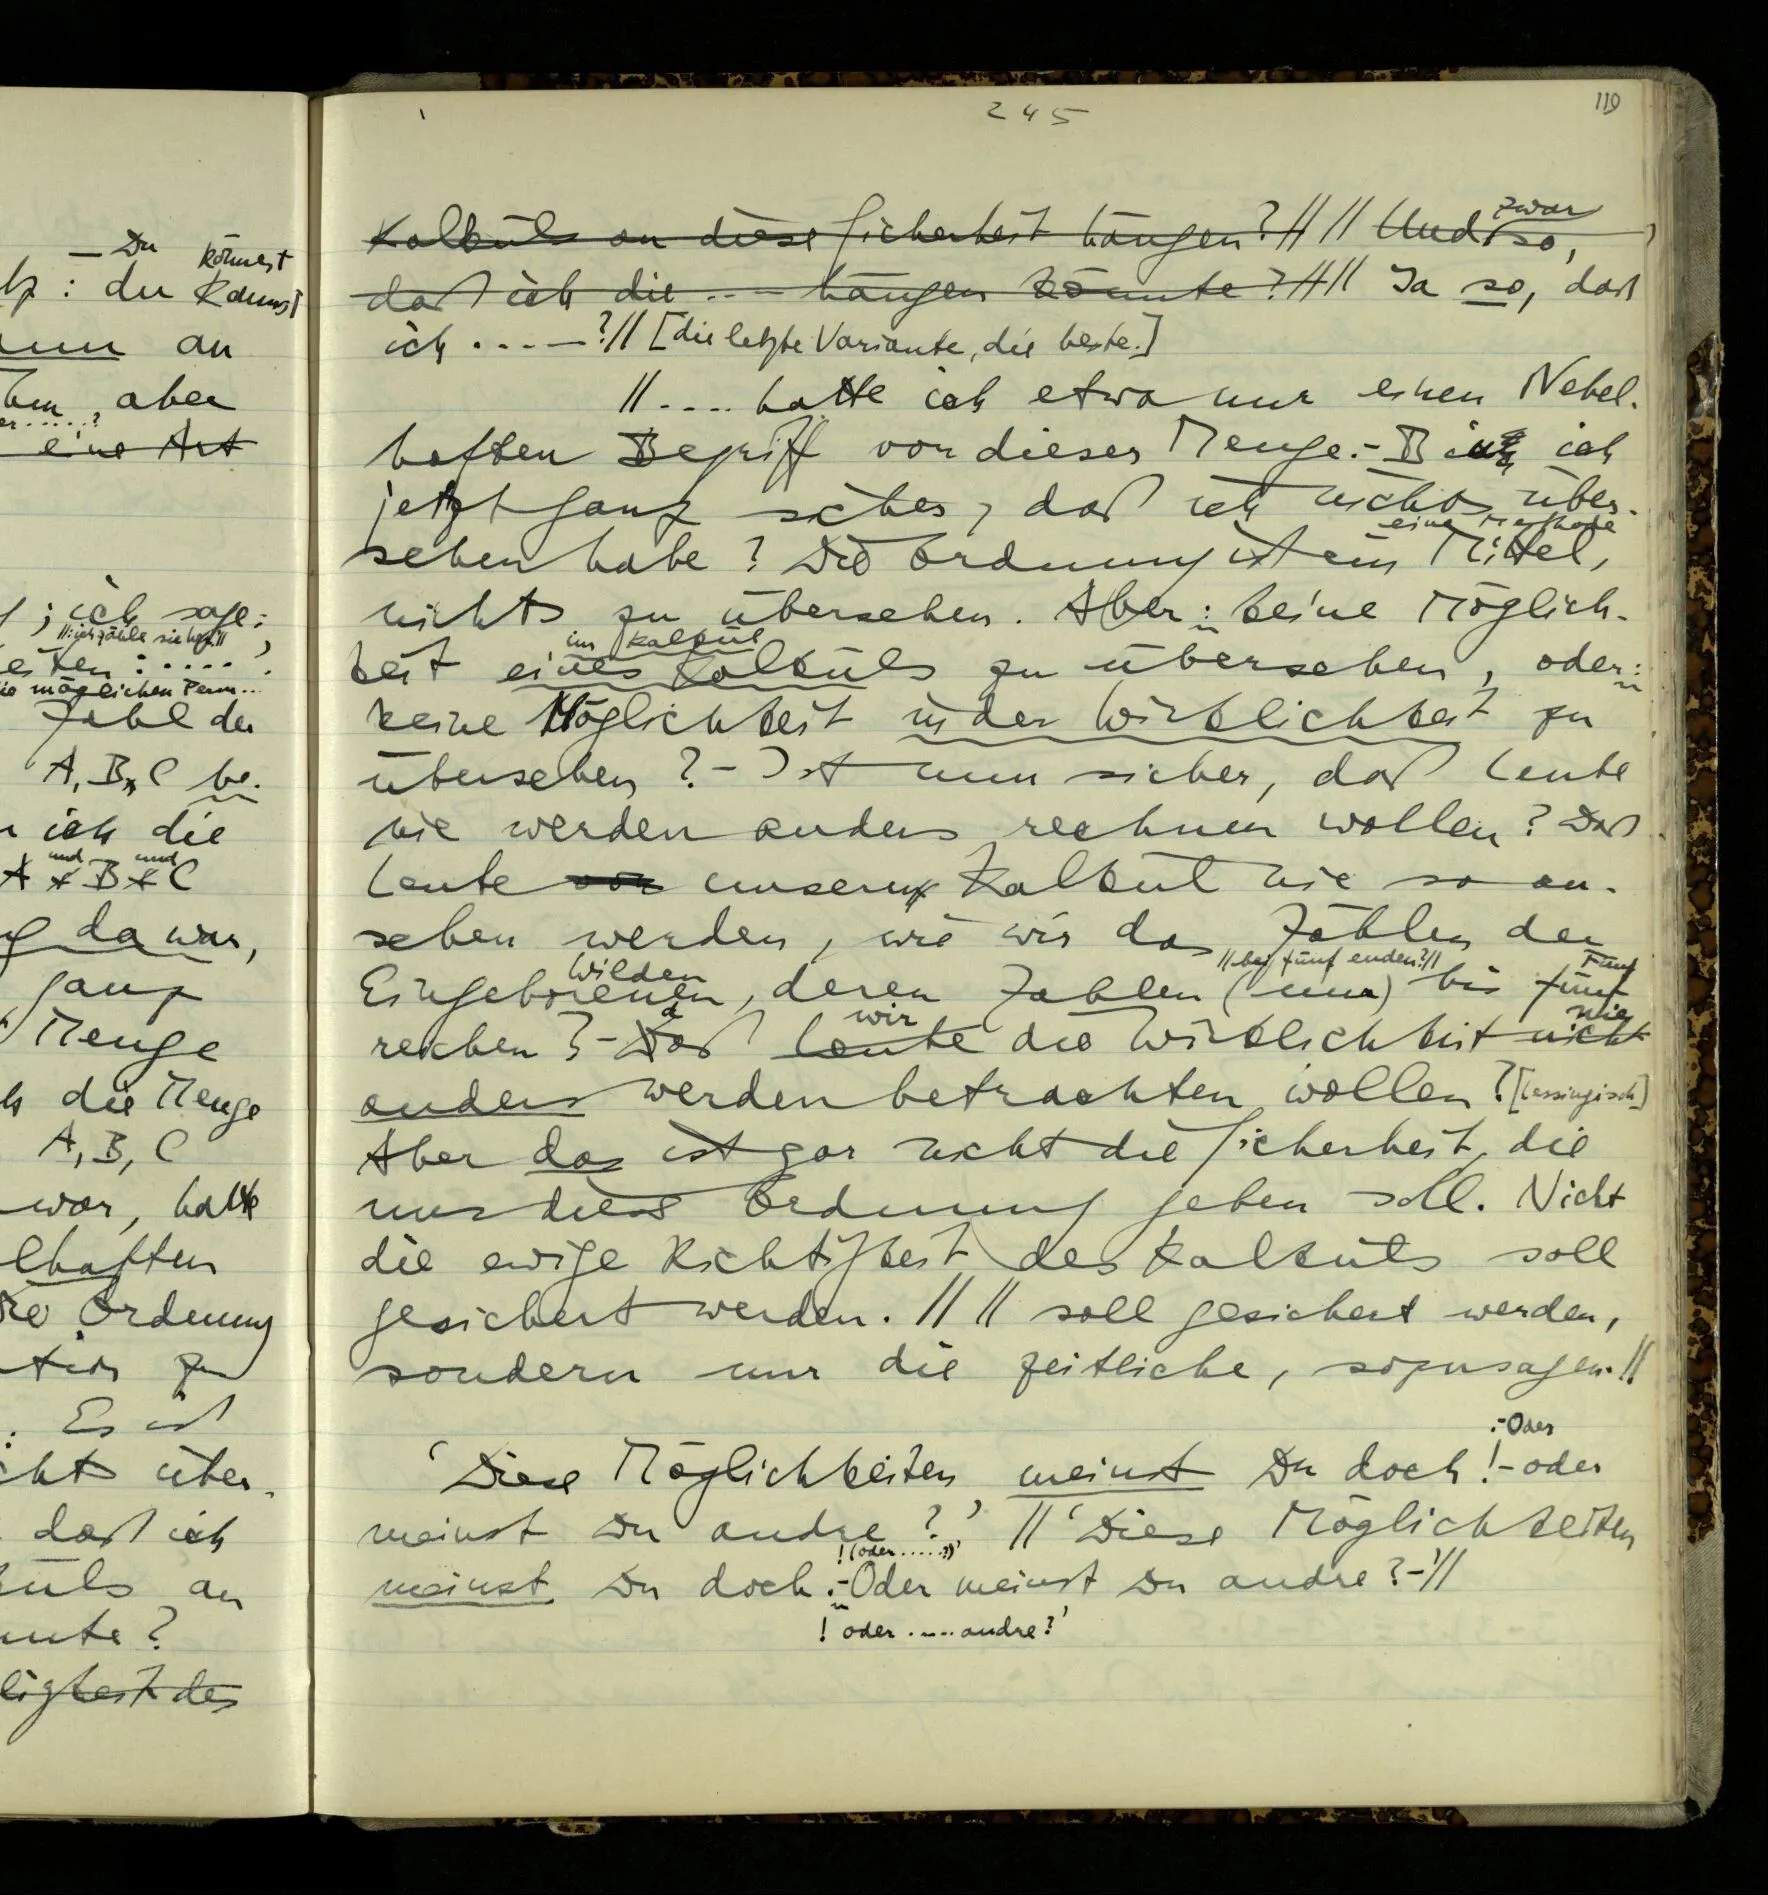 – Du könnest
: du kannst
an
aber
eine Art
; ich sage:
//: ich zähle sie //
die möglichen Perm...
Zahl der
A, B, C be-
ich die
und und
A + B + C
da war,
ganz
Menge
die Menge
A, B, C
war, hatte
lhaften
Ordnung
zu
Es ist
über-
daß ich
küls an
nnte?
ligkeit des
245
119
zwar
Kalküls an diese Sicherheit hängen? // // Und so,
daß ich die .... hängen könnte? // // Ja so, daß
ich .....? // [die letzte Variante, die beste.]
// .... hatte ich etwa nur einen Nebel-
haften Begriff von dieser Menge. – Bin ich
jetzt ganz sicher, daß ich nichts über-
eine Methode
sehen habe? Die Ordnung ist ein Mittel,
nichts zu übersehen. Aber: keine Möglich-
im Kalkül
keit eines Kalküls zu übersehen, oder:
keine Möglichkeit in der Wirklichkeit zu
übersehen? – Ist nun sicher, daß Leute
nie werden anders rechnen wollen? Daß
Leute unsern Kalkül nie so an-
sehen werden, wie wir das Zählen der
Wilden // bei fünf enden? // Fünf
Eingeborenen, deren Zahlen (nur) bis fünf
d wir nie
reichen? – Daß Leute die Wirklichkeit nicht
anders werden betrachten wollen? [Lessingisch]
Aber das ist gar nicht die Sicherheit, die
uns diese Ordnung geben soll. Nicht
die ewige Richtigkeit des Kalküls soll
gesichert werden. // // soll gesichert werden,
sondern nur die zeitliche, sozusagen. //
. – Oder
‘Diese Möglichkeiten meinst Du doch! – oder
meinst Du andre?’ // ‘Diese Möglichkeiten
! (oder .....?)’
meinst Du doch. – Oder meinst Du andre? –’ //
! oder ..... andre?’